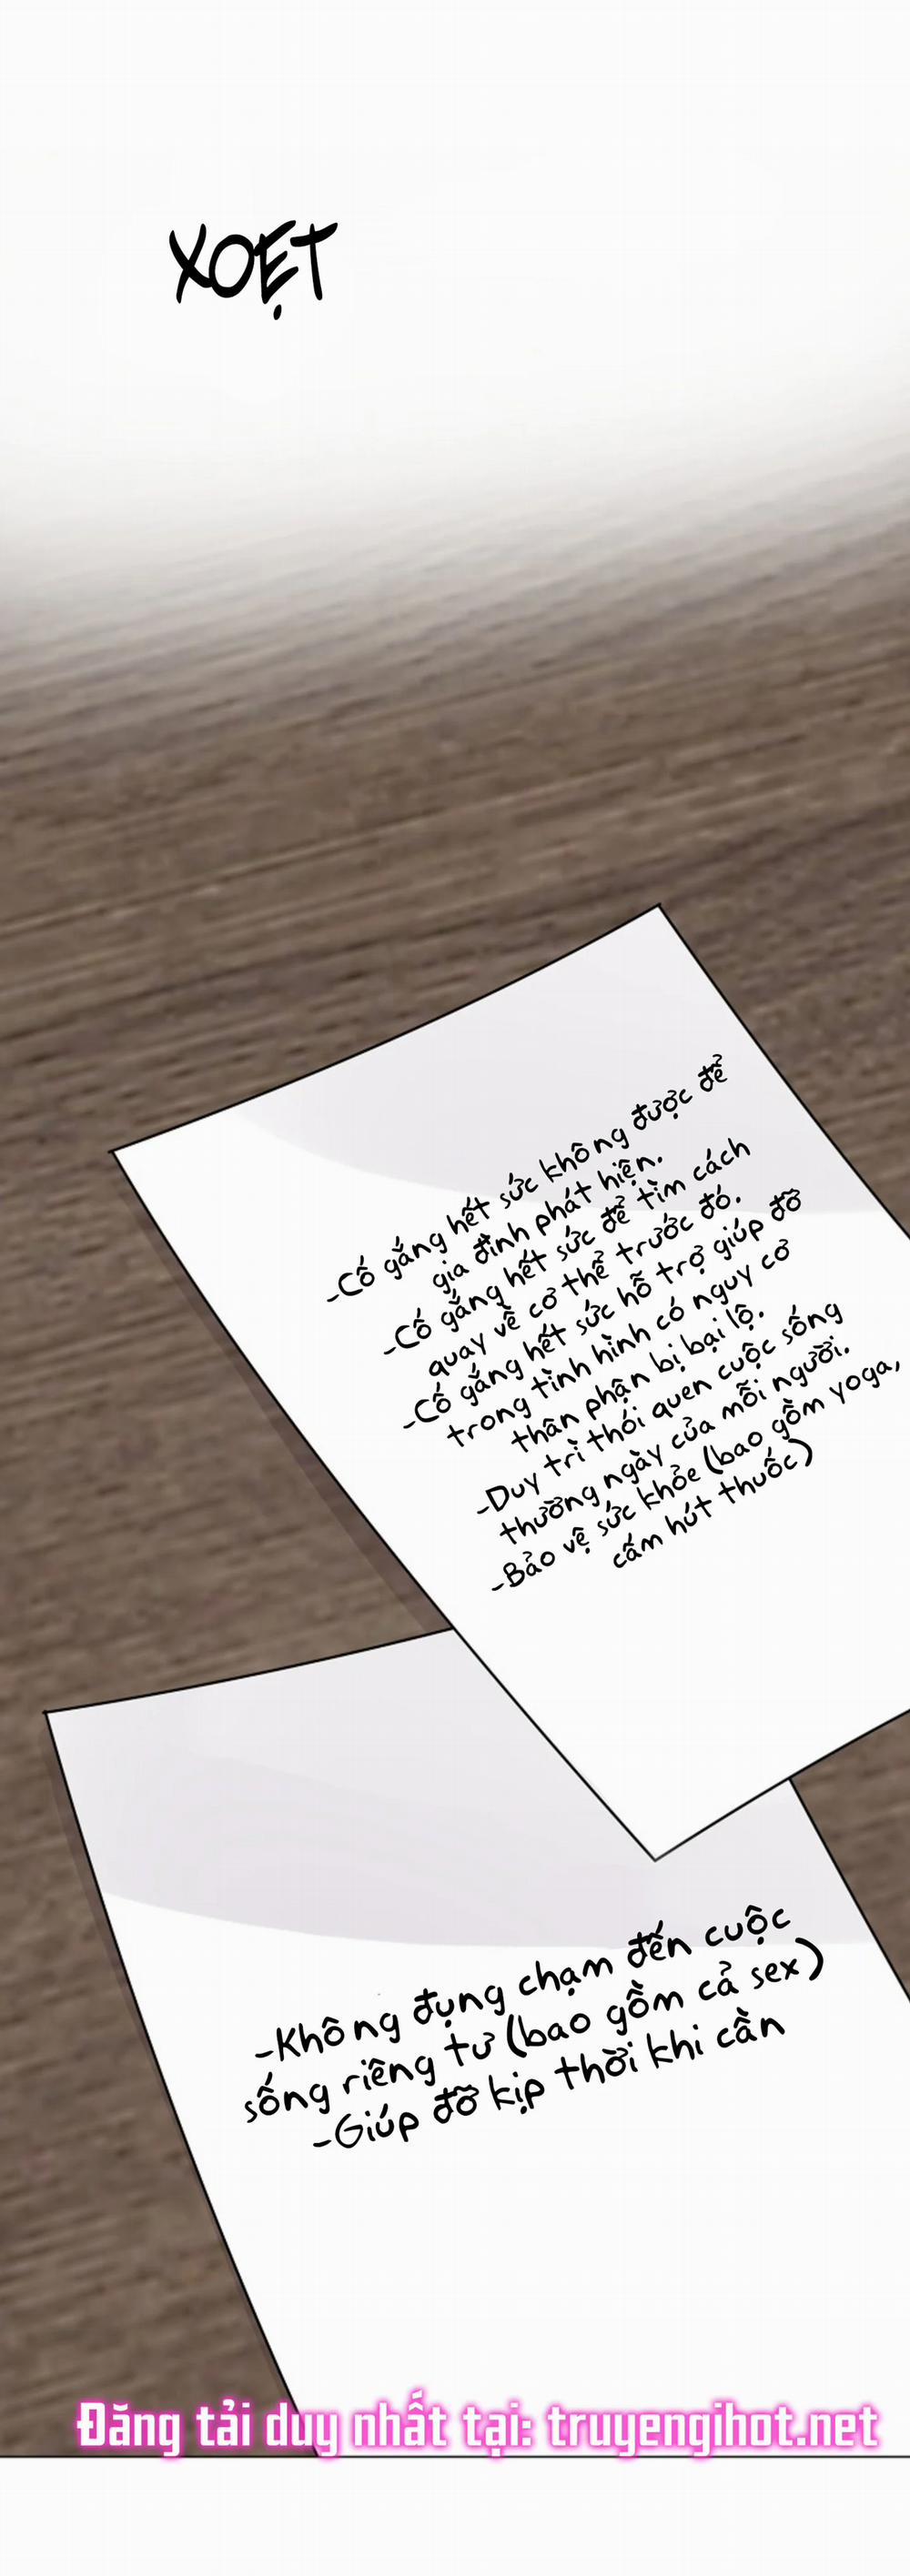 XOẸT
-Cố gắng hết sức không được để
gia đình phát hiện.
-Cố gắng hết sức để tìm cách
quay về cơ thể trước đó.
-Cố gắng hết sức hỗ trợ giúp đỡ
trong tình hình có nguy cơ
thân phận bị bại lộ.
-Duy trì thói quen cuộc sống
thường ngày của mỗi người.
-Bảo vệ sức khỏe (bao gồm yoga,
cấm hút thuốc)
-Không đụng chạm đến cuộc
sống riêng tư (bao gồm cả sex)
-Giúp đỡ kịp thời khi cần
Đăng tải duy nhất tại: truyengihot.net